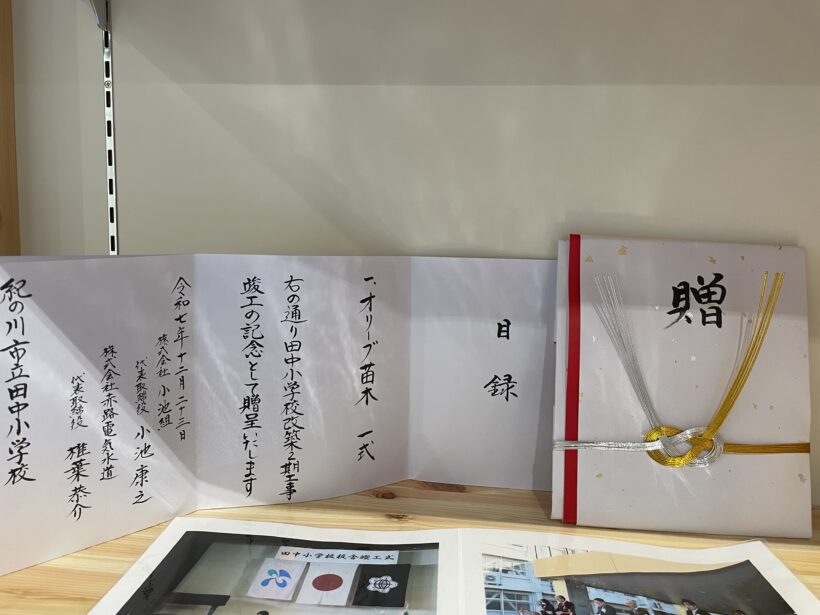 目録
一、オリーブ苗木 一式
右の通り田中小学校改築2期工事
竣工の記念として贈呈いたします
令和七年十二月二十三日
株式会社 小池組
代表取締役 小池康之
株式会社赤路電気水道
代表取締役 稚葉恭介
紀の川市立田中小学校
贈
田中小学校校舎竣工式